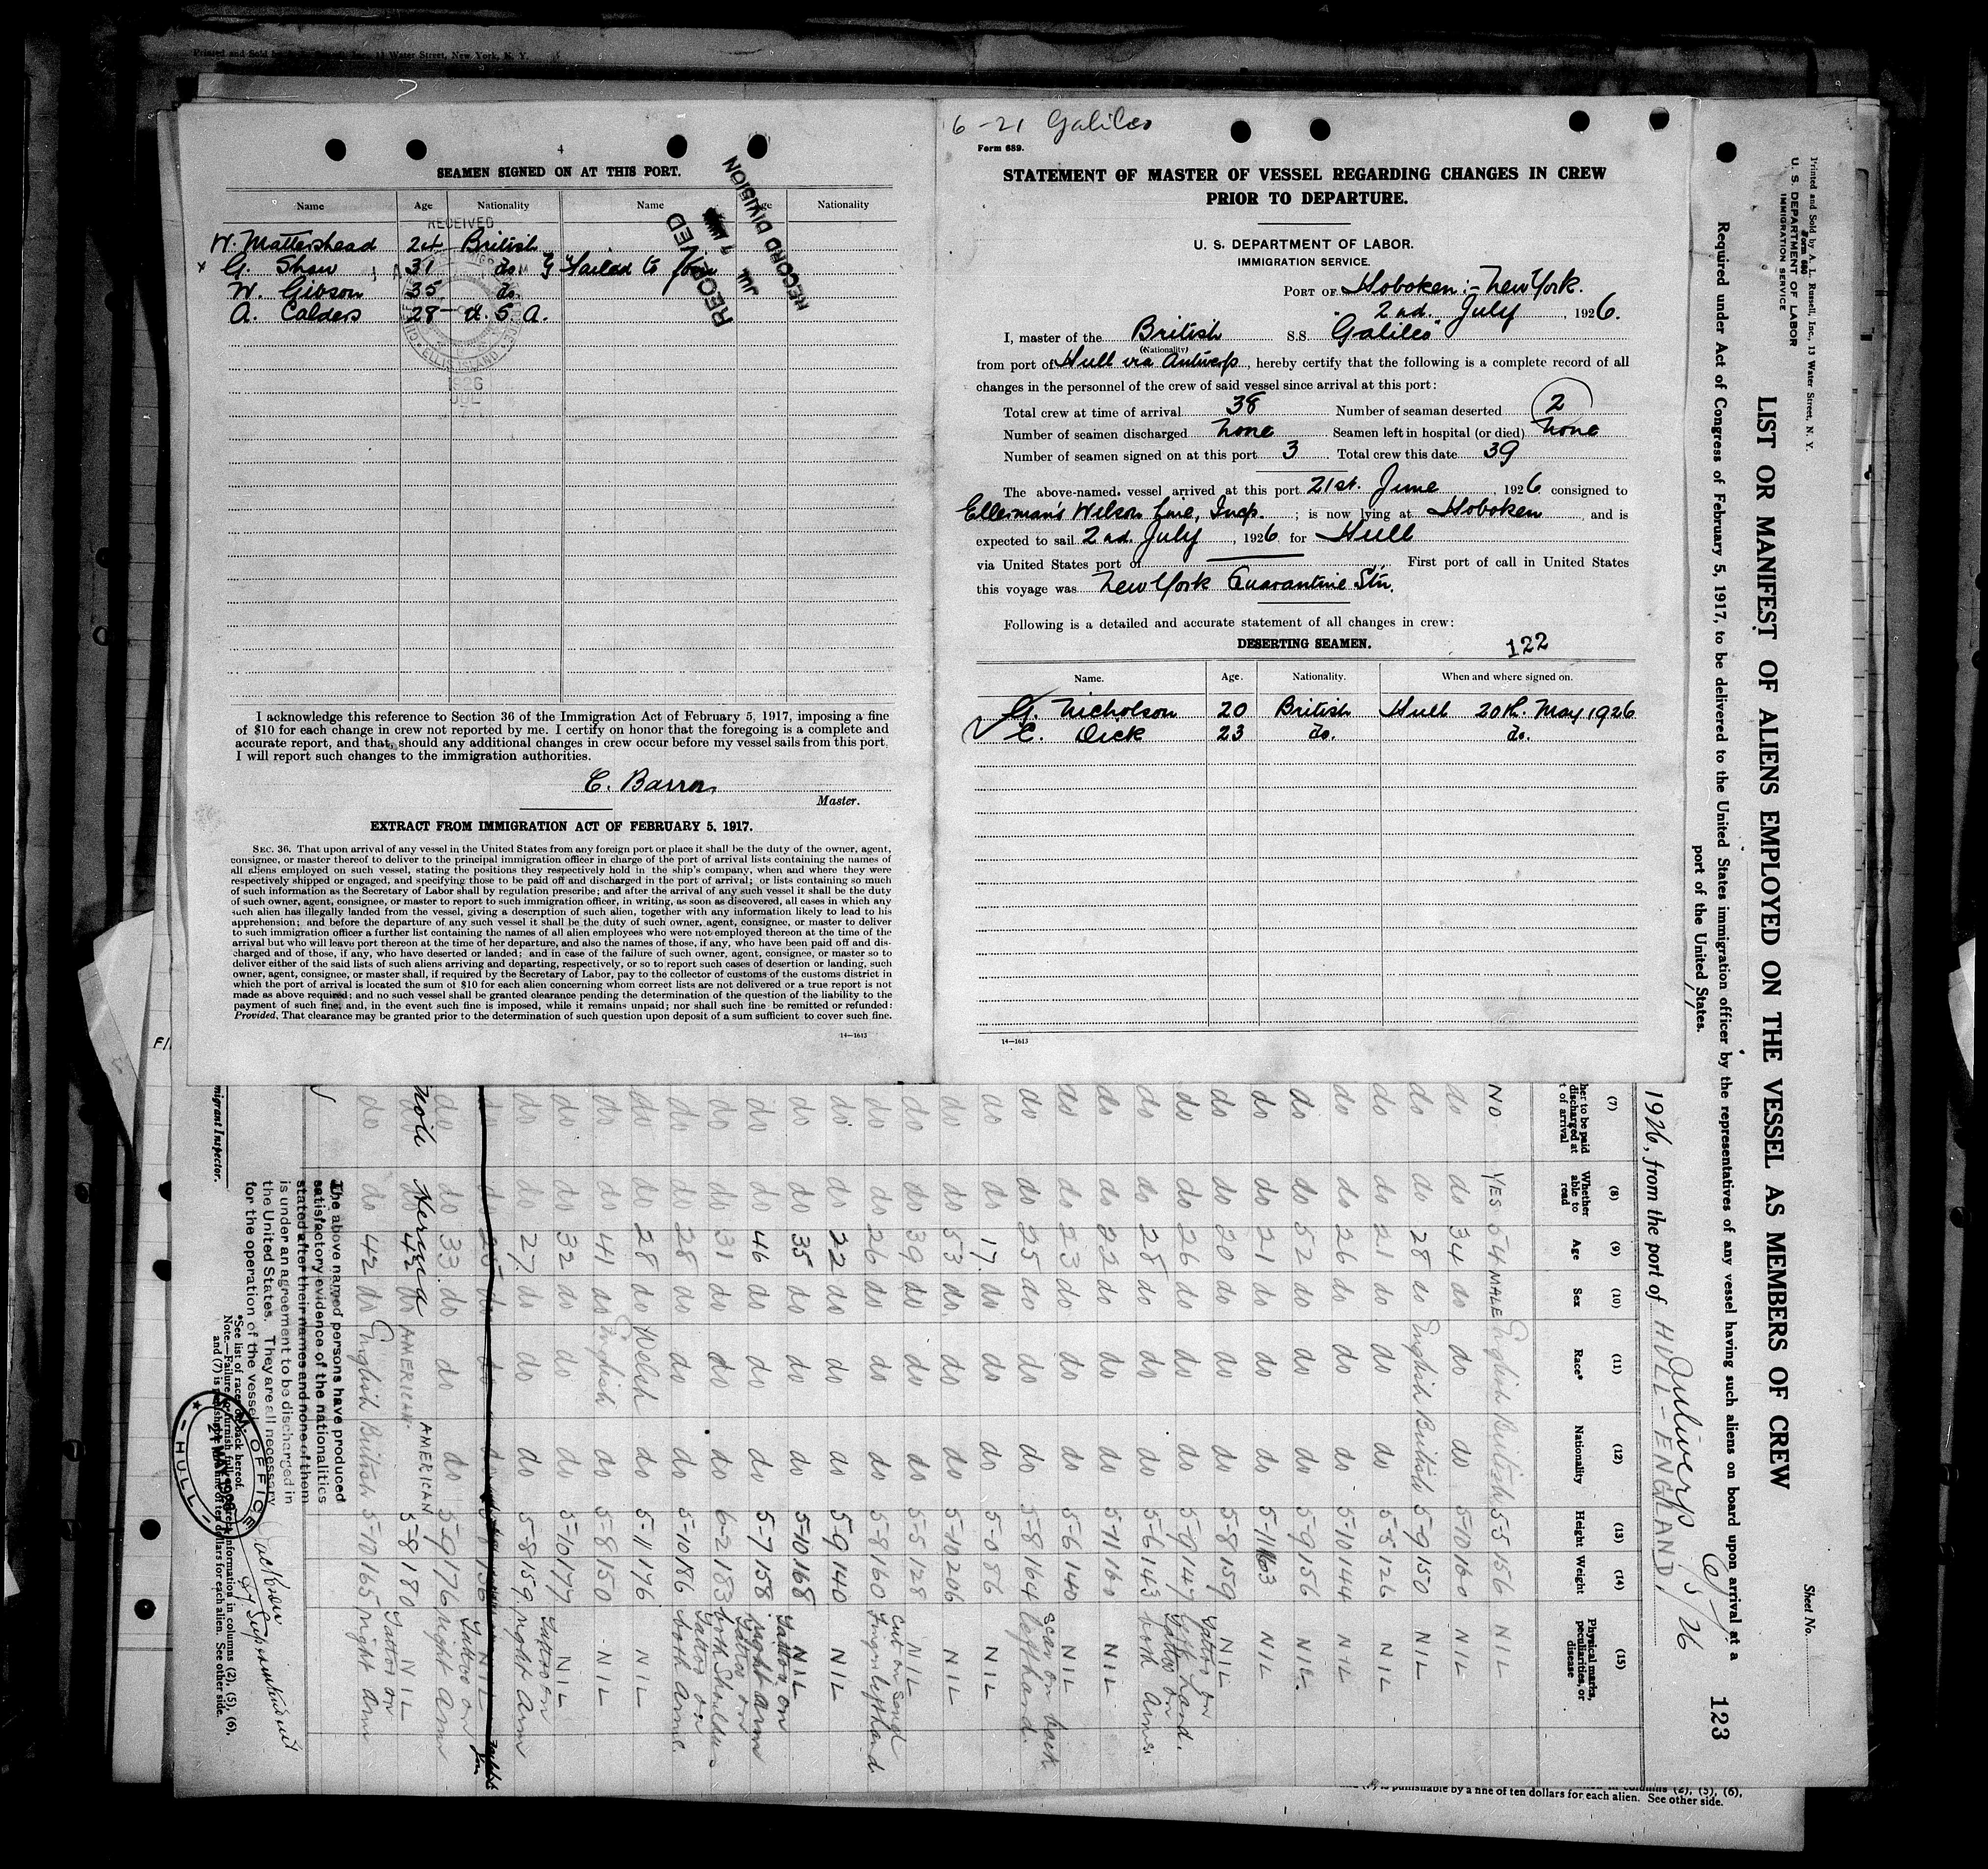 Printed and Sold by
11 Water Street, New York, N. Y.
4
SEAMEN SIGNED ON AT THIS PORT.
Name Age Nationality Name Age Nationality
W. Mattershead 24 British
x G. Shaw 31 do. Failed to Join
W. Gibson 35 do.
A. Calders 28 U. S. A.
RECEIVED
ELLIS ISLAND
1926
JUL
RECEIVED
JUL 1
RECORD DIVISION
RECORD DIVISION
I acknowledge this reference to Section 36 of the Immigration Act of February 5, 1917, imposing a fine
of $10 for each change in crew not reported by me. I certify on honor that the foregoing is a complete and
accurate report, and that, should any additional changes in crew occur before my vessel sails from this port,
I will report such changes to the immigration authorities.
C. Barron
Master.
EXTRACT FROM IMMIGRATION ACT OF FEBRUARY 5, 1917.
SEC. 36. That upon arrival of any vessel in the United States from any foreign port or place it shall be the duty of the owner, agent,
consignee, or master thereof to deliver to the principal immigration officer in charge of the port of arrival lists containing the names of
all aliens employed on such vessel, stating the positions they respectively hold in the ship's company, when and where they were
respectively shipped or engaged, and specifying those to be paid off and discharged in the port of arrival; or lists containing so much
of such information as the Secretary of Labor shall by regulation prescribe; and after the arrival of any such vessel it shall be the duty
of such owner, agent, consignee, or master to report to such immigration officer, in writing, as soon as discovered, all cases in which any
such alien has illegally landed from the vessel, giving a description of such alien, together with any information likely to lead to his
apprehension; and before the departure of any such vessel it shall be the duty of such owner, agent, consignee, or master to deliver
to such immigration officer a further list containing the names of all alien employees who were not employed thereon at the time of the
arrival but who will leave port thereon at the time of her departure, and also the names of those, if any, who have been paid off and dis-
charged and of those, if any, who have deserted or landed; and in case of the failure of such owner, agent, consignee, or master so to
deliver either of the said lists of such aliens arriving and departing, respectively, or so to report such cases of desertion or landing, such
owner, agent, consignee, or master shall, if required by the Secretary of Labor, pay to the collector of customs of the customs district in
which the port of arrival is located the sum of $10 for each alien concerning whom correct lists are not delivered or a true report is not
made as above required; and no such vessel shall be granted clearance pending the determination of the question of the liability to the
payment of such fine, and, in the event such fine is imposed, while it remains unpaid; nor shall such fine be remitted or refunded:
Provided, That clearance may be granted prior to the determination of such question upon deposit of a sum sufficient to cover such fine.
14—1613
6-21 Galileo
Form 689.
STATEMENT OF MASTER OF VESSEL REGARDING CHANGES IN CREW
PRIOR TO DEPARTURE.
U. S. DEPARTMENT OF LABOR.
IMMIGRATION SERVICE.
PORT OF Hoboken:- New York.
2nd. July, 1926.
I, master of the British S.S. "Galileo"
(Nationality)
from port of Hull via Antwerp, hereby certify that the following is a complete record of all
changes in the personnel of the crew of said vessel since arrival at this port:
Total crew at time of arrival 38 Number of seaman deserted 2
Number of seamen discharged none Seamen left in hospital (or died) none
Number of seamen signed on at this port 3 Total crew this date 39
The above-named vessel arrived at this port 21st. June 1926 consigned to
Ellerman's Wilson Line, Incp. ; is now lying at Hoboken and is
expected to sail 2nd. July, 1926 for Hull
via United States port of First port of call in United States
this voyage was New York Quarantine Stn.
Following is a detailed and accurate statement of all changes in crew:
DESERTING SEAMEN. 122
Name. Age. Nationality. When and where signed on.
G. Nicholson 20 British Hull 20th. May 1926
C. Dick 23 do. do.
14—1613
Printed and Sold by A. L. Russell, Inc., 13 Water Street, N. Y.
Form 680
U. S. DEPARTMENT OF LABOR
IMMIGRATION SERVICE
Sheet No.
LIST OR MANIFEST OF ALIENS EMPLOYED ON THE VESSEL AS MEMBERS OF CREW
123
Required under Act of Congress of February 5, 1917, to be delivered to the United States immigration officer by the representatives of any vessel having such aliens on board upon arrival at a
port of the United States.
1926, from the port of HULL - ENGLAND,
Antwerp 5/26
(7) (8) (9) (10) (11) (12) (13) (14) (15)
her to be paid discharged at t of arrival Whether able to read Age Sex Race* Nationality Height Weight Physical marks, peculiarities, or disease
NO YES 54 MALE English British 5-5 156 NIL
do do 34 do do do 5-10 160 NIL
do do 28 do English British 5-9 150 NIL
do do 21 do do do 5-5 126 NIL
do do 26 do do do 5-10 144 NIL
do do 52 do do do 5-9 156 NIL
do do 21 do do do 5-11 163 NIL
do do 20 do do do 5-8 159 NIL
do do 26 do do do 5-9 147 Tattoo on left hand.
do do 28 do do do 5-6 143 Tattoo on both Arms
do do 22 do do do 5-11 160 NIL
do do 23 do do do 5-6 140 NIL
do do 25 do do do 5-8 164 Scar on back left hand.
do do 17 do do do 5-0 86 NIL
do do 53 do do do 5-10 206 NIL
do do 39 do do do 5-5 128 NIL
do do 26 do do do 5-8 160 Cut on Finger left Hand
do do 22 do do do 5-9 140 NIL
do do 35 do do do 5-10 168 NIL
do do 46 do do do 5-7 158 Tattoo on right arm
do do 31 do do do 6-2 183 Tattoo on both Shoulders
do do 28 do do do 5-10 186 Tattoo on both Arms
do do 28 do Welsh do 5-11 176 NIL
do do 41 do English do 5-8 150 NIL
do do 32 do do do 5-10 177 NIL
do do 27 do do do 5-8 159 Tattoo on right Arm
do do 33 do do do 5-9 176 Tattoo on right Arm
do do 42 do AMERICAN AMERICAN 5-8 180 NIL
do do 42 do English British 5-10 165 Tattoo on right arm
The above named persons have produced
satisfactory evidence of the nationalities
stated after their names and none of them
is under an agreement to be discharged in
the United States. They are all necessary
for the operation of the vessel.
Superintendent
OFFICE
HULL
migrant Inspector.
*See list of races on back hereof.
Note.—Failure to furnish full information in columns (2), (5), (6),
and (7) is punishable by a fine of ten dollars for each alien. See other side.
is punishable by a fine of ten dollars for each alien. See other side.